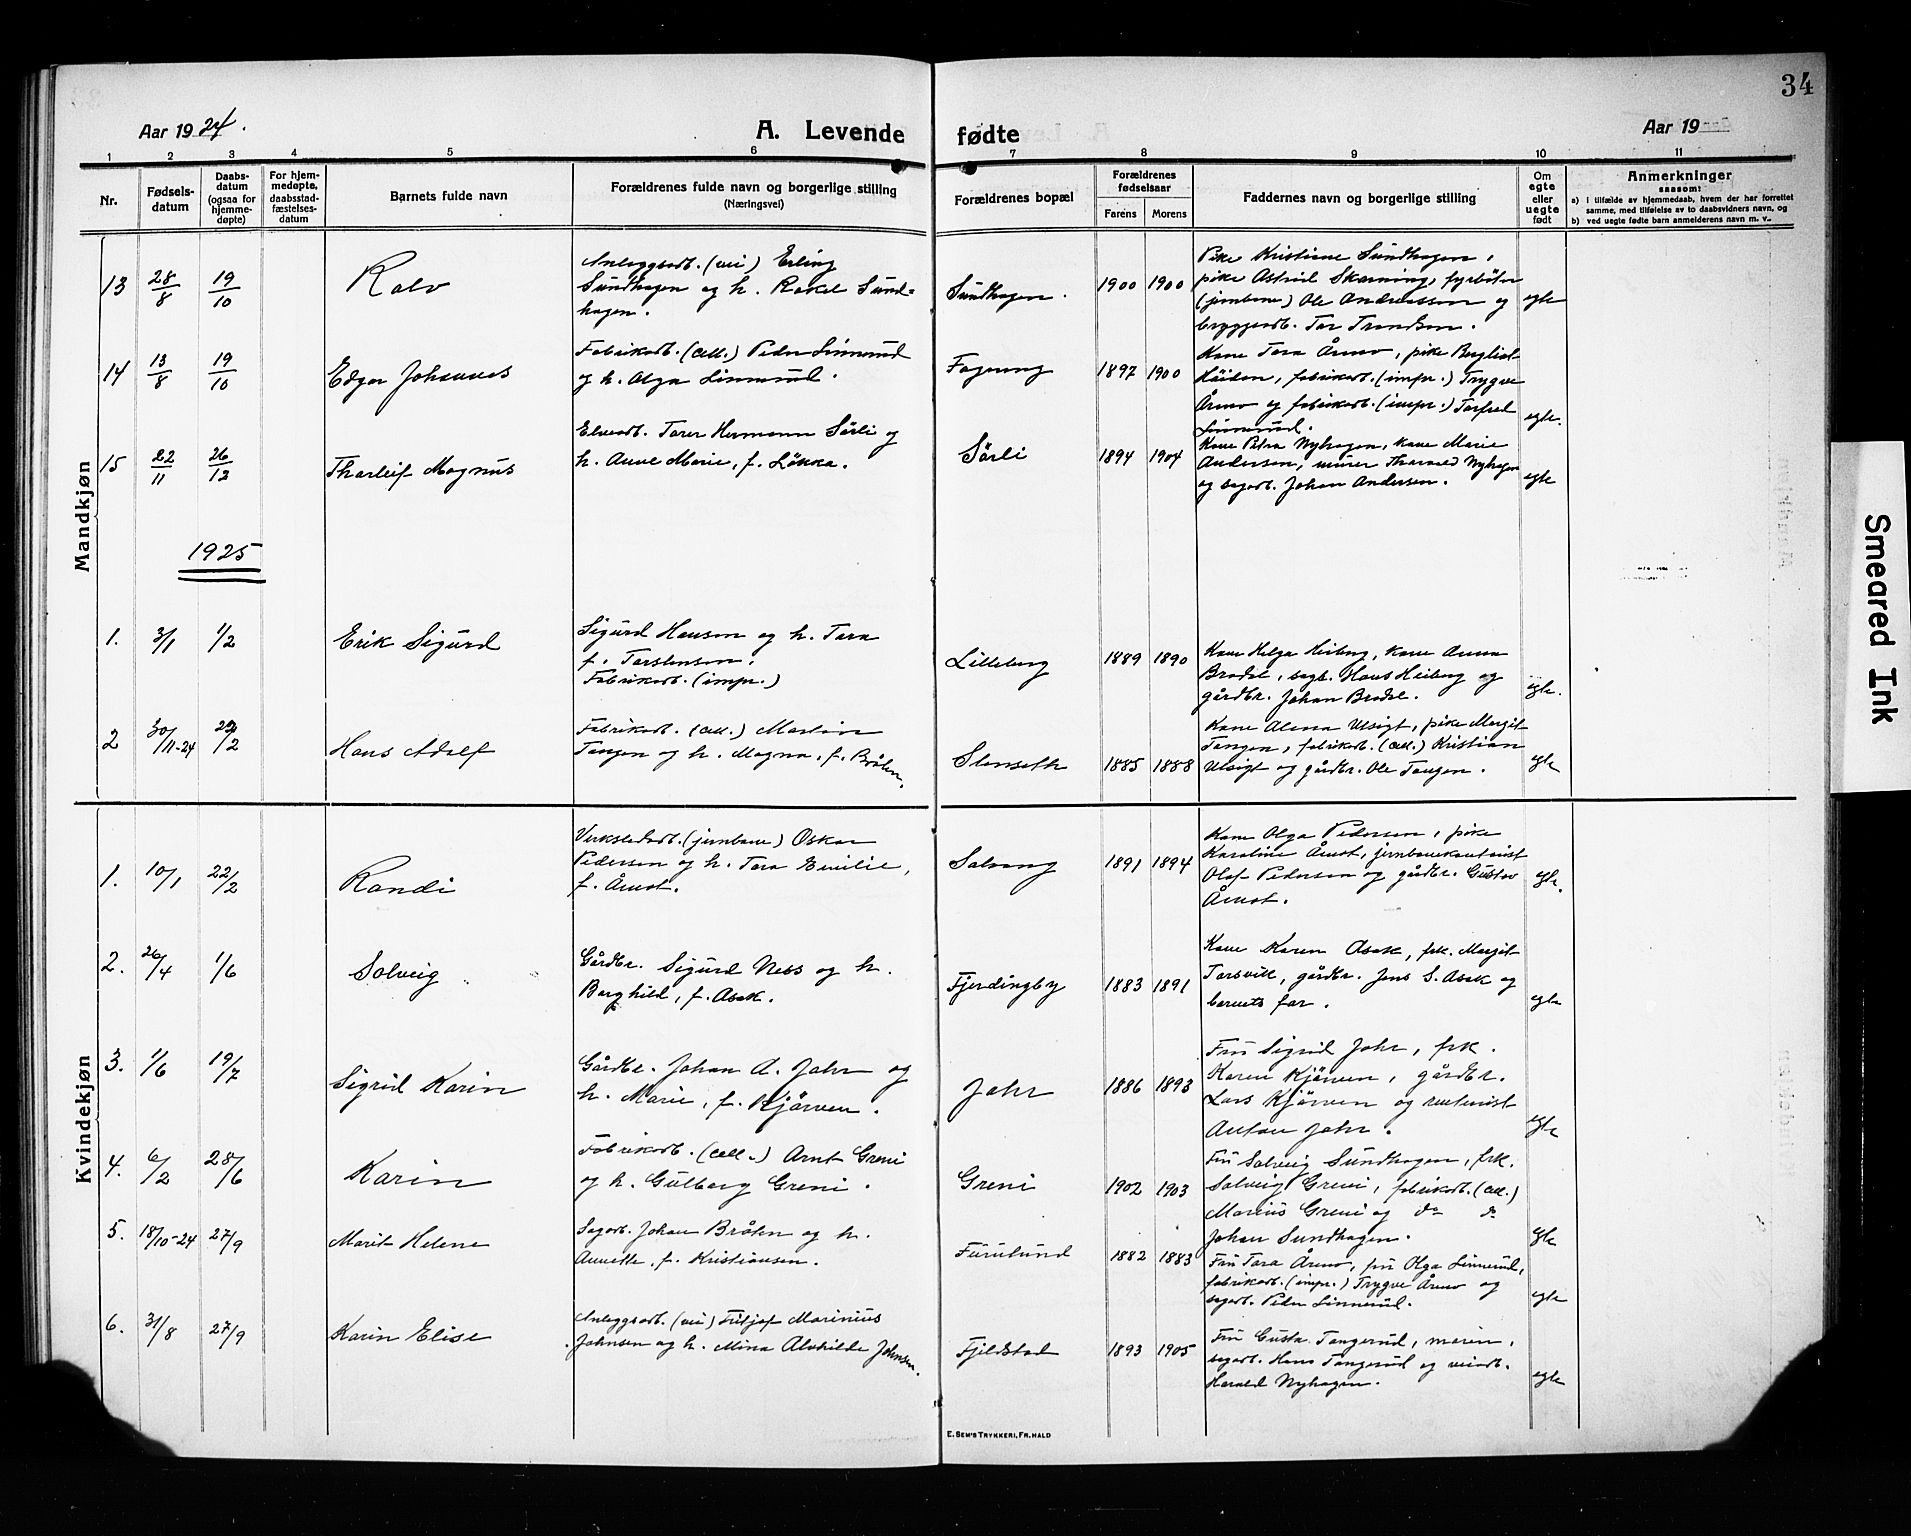 34
Aar 1924.
A. Levende fødte
Aar 19
1 2 3 4 5 6 7 8 9 10 11
Nr.
Fødsels-
datum
Daabs-
datum
(ogsaa for
hjemme-
døpte)
For hjem-
medøpte,
daabsstad-
fæstelses-
datum
Barnets fulde navn
Forældrenes fulde navn og borgerlige stilling
(Næringsvei)
Forældrenes bopæl
Forældrenes
fødselsaar
Farens Morens
Faddernes navn og borgerlige stilling
Om
egte
eller
uegte
født
Anmerkninger
saasom:
a) i tilfælde av hjemmedaab, hvem der har forrettet
samme, med tilføielse av to daabsvidners navn, og
b) ved uegte fødte barn anmelderens navn m. v.
Mandkjøn
13 28/8 19/10 Rolv
Anleggsarb. (vei) Erling
Sundhagen og h. Rakel Sund-
hagen.
Sundhagen. 1900 1900
Pike Kristiane Sundhagen,
pike Astrid Skarning, fyrbøter
(jernbane) Ole Andreassen og
bryggearb. Tor Trondsen.
egte
14 13/8 19/10 Edgar Johannes
Fabrikarb. (cell.) Peder Linnerud
og h. Olga Linnerud.
Fagereng 1897 1900
Kone Tora Årmo, pike Bergliot
Häiden, fabrikarb. (impr.) Trygve
Årmo og fabrikarb. (impr.) Torfred
Linnerud.
egte.
15 22/11 26/12 Tharleif Magnus
Elvearb. Torer Hermann Sörli og
h. Anne Marie, f. Løkka.
Sörli 1894 1904
Kone Petra Nyhagen, kone Marie
Andersen, murer Tharvald Nyhagen
og sagarb. Johan Andersen.
egte
1925
1. 3/1 1/2 Erik Sigurd
Sigurd Hansen og h. Tora
f. Torstensen.
Fabrikarb. (impr.)
Lilleberg 1889 1890
Kone Helga Heiberg, kone Anna
Brodal, sagb. Hans Heiberg og
gårdbr. Johan Brodal.
egte.
2 30/11-24 22/2 Hans Adolf
Fabrikarb. (cell.) Martin
Tangen og h. Magna, f. Bråten.
Stenseth 1885 1888
Kone Alma Utsigt, pike Margit
Tangen, fabrikarb. (cell.) Kristian
Utsigt og gårdbr. Ole Tangen.
egte
Kvindekjøn
1. 10/1 22/2 Randi
Verkstedarb. (jernbane) Oskar
Pedersen og h. Tora Emilie,
f. Åmot.
Solvang 1891 1894
Kone Olga Pedersen, pike
Karoline Åmot, jernbanekontorist
Olaf Pedersen og gårdbr. Gustav
Åmot.
egte.
2. 26/4 1/6 Solveig
Gårdbr. Sigurd Ness og h.
Borghild, f. Asak.
Fjerdingby 1883 1891
Kone Karen Asak, frk. Margit
Torsvik, gårdbr. Jens S. Asak og
barnets far.
egte
3. 1/6 19/7 Sigrid Karin
Gårdbr. Johan A. Jahr og
h. Marie, f. Kjörven.
Jahr 1886 1893
Fru Sigrid Jahr, frk.
Karen Kjörven, gårdbr.
Lars Kjörven og rentenist
Anton Jahr.
egte
4. 6/2 28/6 Karin
Fabrikarb. (cell.) Arnt Greni
og h. Gulborg Greni.
Greni 1902 1903
Fru Solveig Sundhagen, frk.
Solveig Greni, fabrikarb. (cell.)
Marius Greni og do do
Johan Sundhagen.
egte
5. 18/10-24 27/9 Marit Helene
Sagarb. Johan Bråten og h.
Annette, f. Kristiansen.
Furulund 1882 1883
Fru Tora Årmo, fru Olga Linnerud,
fabrikarb. (impr.) Trygve Årmo og
sagarb. Peder Linnerud.
egte
6. 31/8 27/9 Karin Elise
Anleggsarb. (vei) Fritjof Marinius
Johnsen og h. Mina Alvhilde Johnsen.
Fjeldstad 1893 1905
Fru Gusta Tangerud, moren,
sagarb. Hans Tangerud og veiarb.
Harald Nyhagen.
egte
E. Sem's Trykkeri, Fr.hald
Smeared Ink